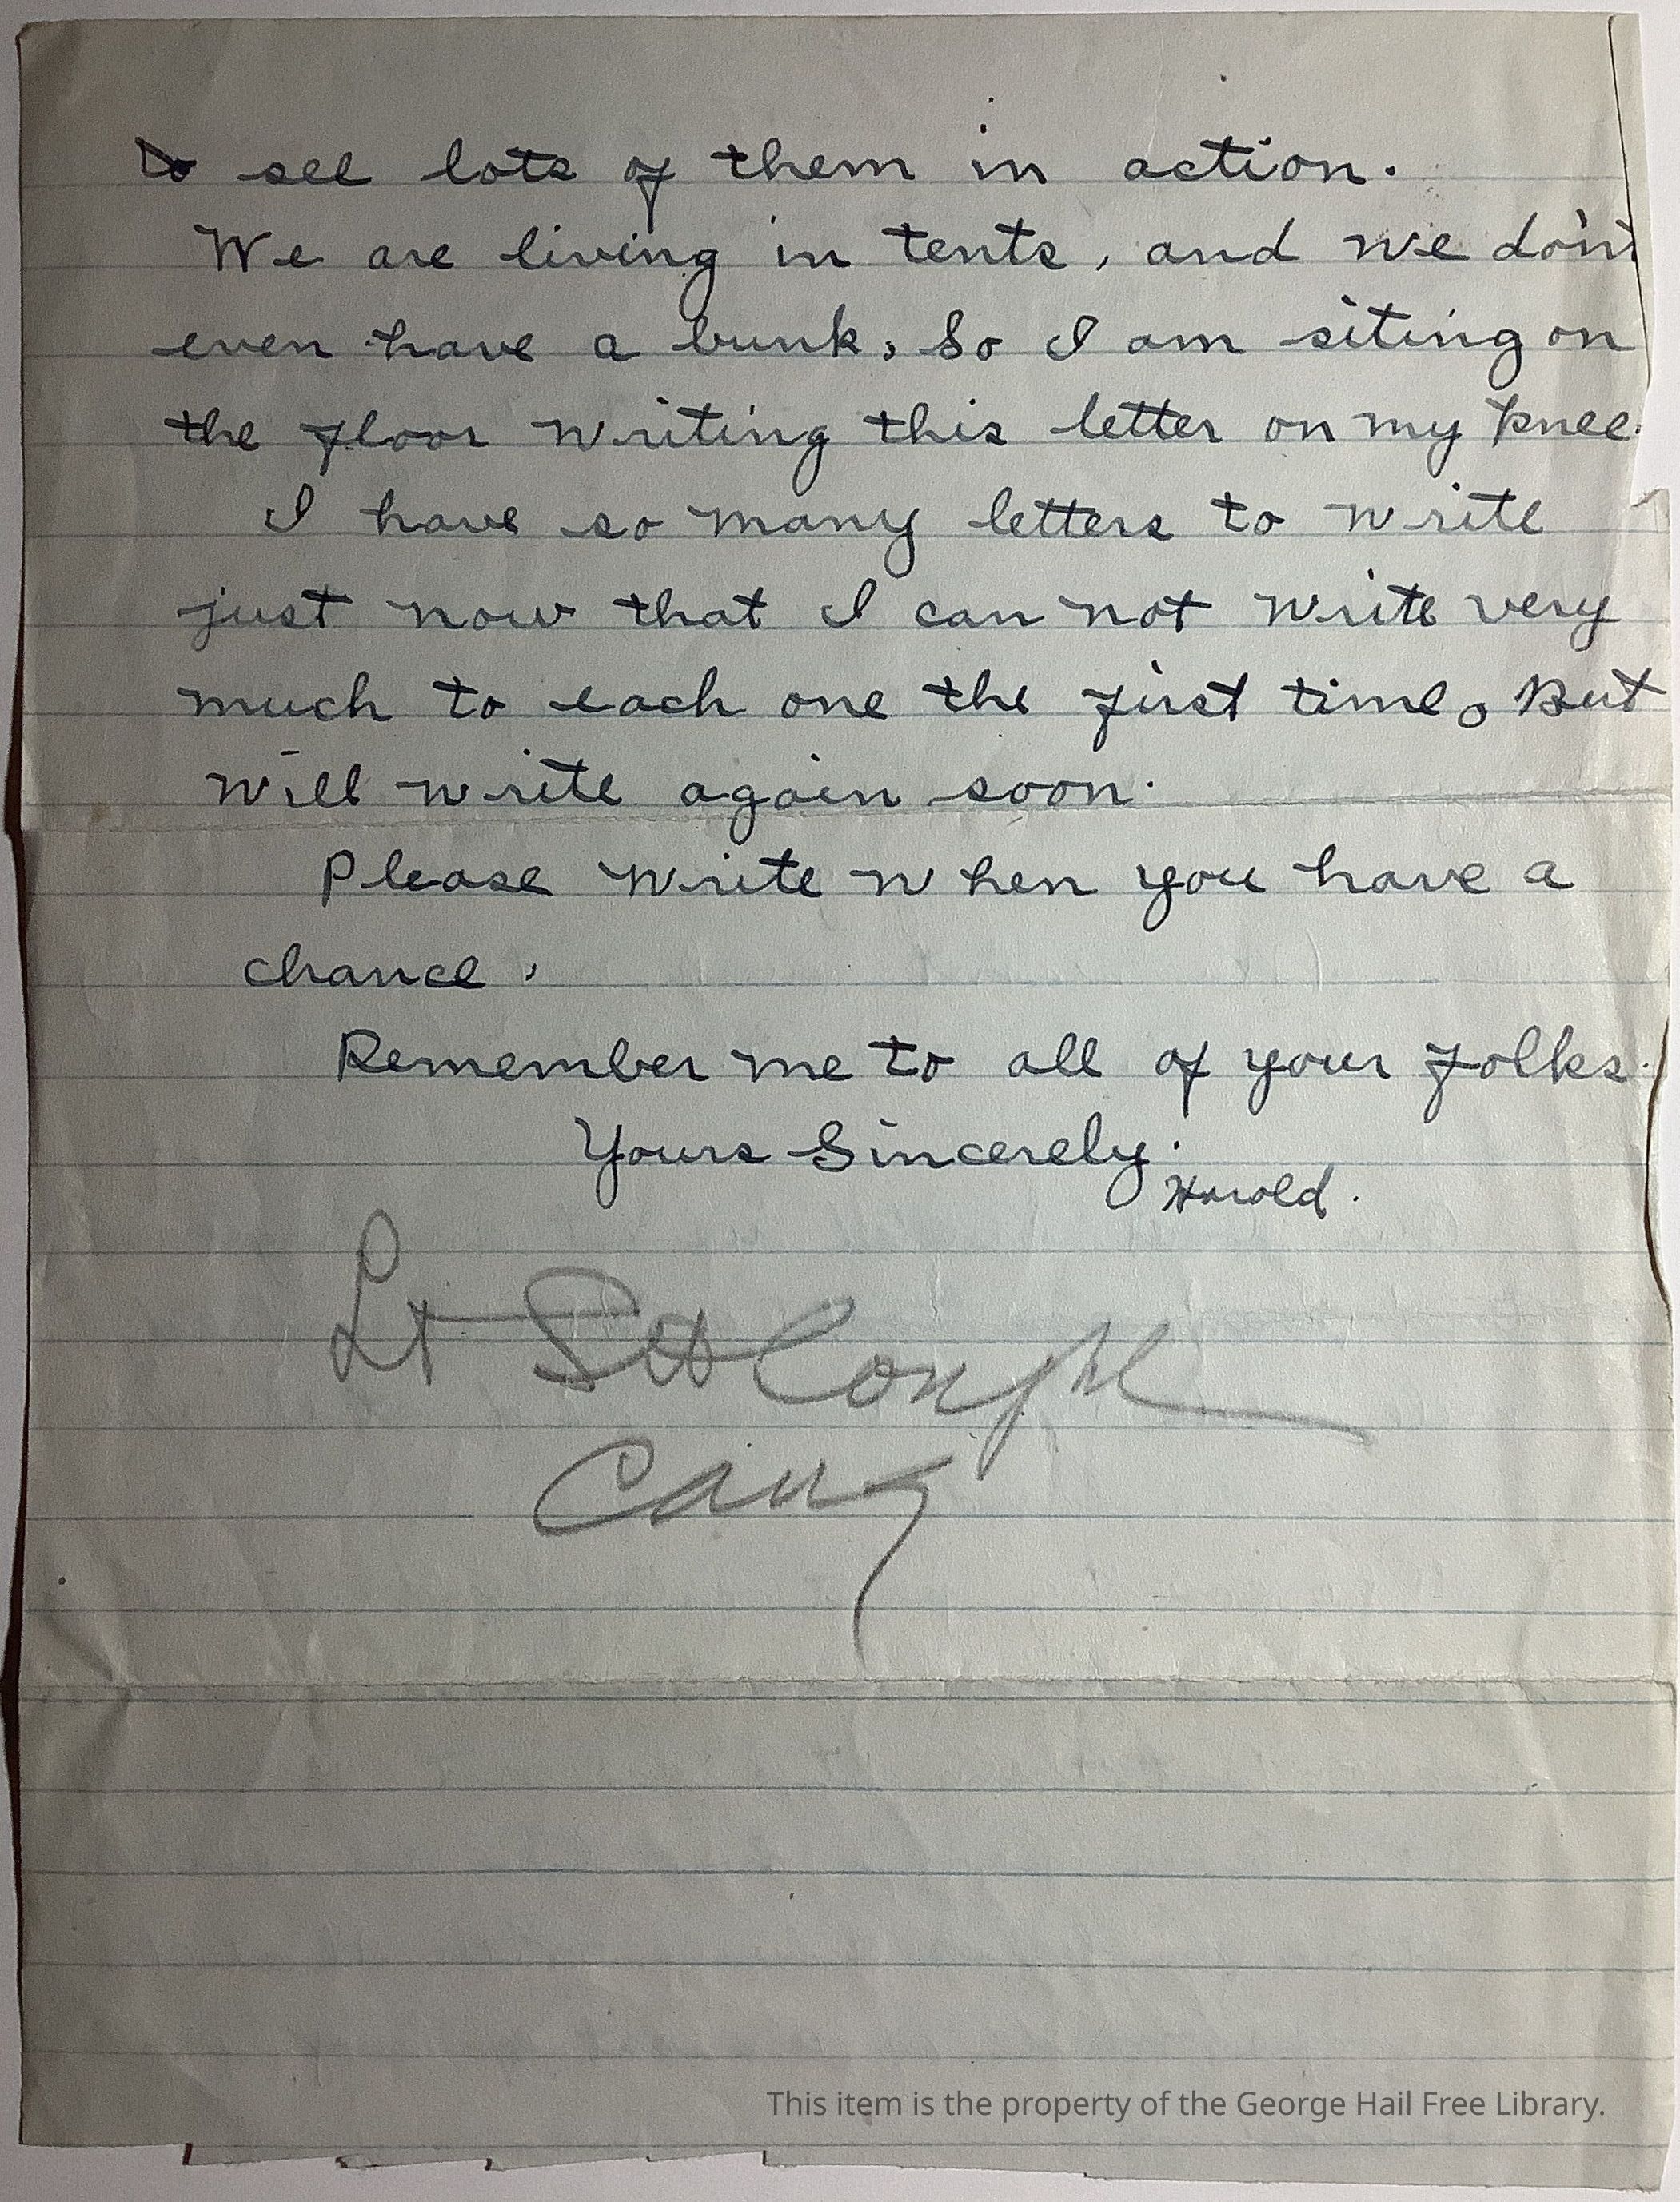 to see lots of them in action.
We are living in tents, and we don't
even have a bunk, So I am siting on
the floor writing this letter on my knee.
I have so many letters to write
just now that I can not write very
much to each one the first time. But
will write again soon.
Please write when you have a
chance,
Remember me to all of your folks.
Yours Sincerely.
Harold.
Lt
This item is the property of the George Hail Free Library.